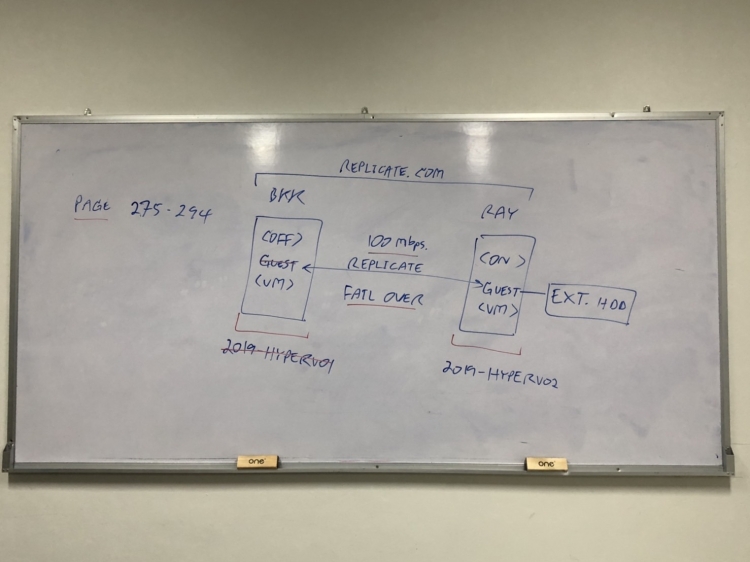 REPLICATE.COM
BKK
RAY
PAGE 275-294
<OFF>
GUEST
<VM>
100 mbps.
REPLICATE
FAIL OVER
<ON>
GUEST
<VM>
EXT. HDD
2019-HYPERV01
2019-HYPERV02
one
one